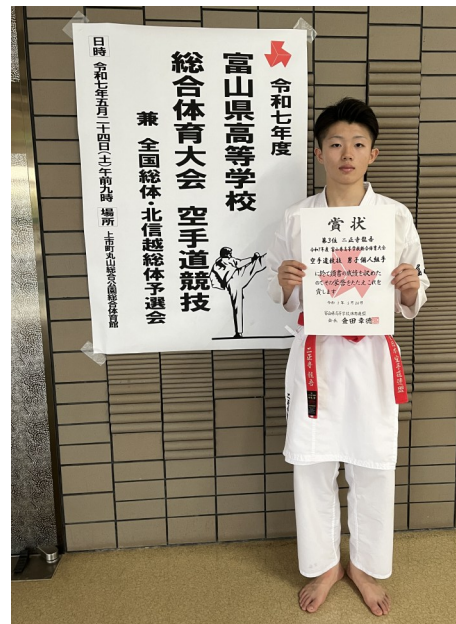 令和七年度
富山県高等学校
総合体育大会 空手道競技
兼 全国総体・北信越総体予選会
日時 令和七年五月二十四日(土)午前九時 場所 上市町丸山総合公園総合体育館
賞状
第3位
令和7年度 富山県高等学校総合体育大会
空手道競技 男子個人組手
に於て頭書の成績を収めた
のでその栄誉をたたえこれを
賞します